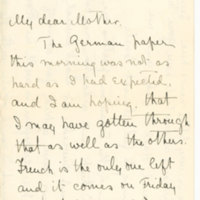 My dear Mother.
The German paper
this morning was not as
hard as I had expected,
and I am hoping that
I may have gotten through
that as well as the others.
French is the only one left
and it comes on Friday